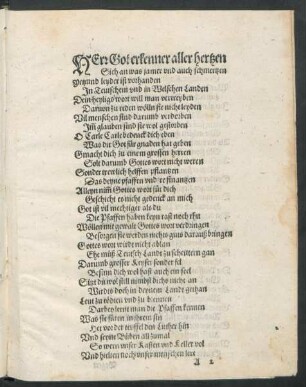 HErr Got erkenner aller hertzen
Sich an was jamer vnd auch schmertzen
yetzund leyder ist verhanden
In Teutschem vnd in Welschen Landen
Dein heyligs wort will man vertreyben
Daruon zu reden wölln sie nicht leyden
Vil menschen sind darumb verdorben
Im glauben sind sie wol gestorben
O Carle Carle bedenck dich eben
Was dir Got für gnaden hat geben
Gemacht dich zu einem grossen herren
Solt darumb Gottes wort nicht weren
Sonder trewlich helffen pflantzen
Das deyne pfaffen vnd
Alleyn nim Gottes wort für dich
Geschicht es nicht gedenck an mich
Got ist vil mechtiger als du
Die Pfaffen haben keyn rast noch rhu
Wöllen mit gewalt Gottes wort verdringen
Besorgen sie werden nichts guts darauß bringen
Gottes wort würdt nicht ablan
Ehe müst Teutsch Landt zu scheittern gan
Darumb grosser Keyser sonder fel
Besinn dich wol hast auch ein seel
Sitzt du wol still nimbst dichs nicht an
Würdts doch in deinem Landt gethan
Leut zu tödten vnd zu brennen
Darbey lernt man die Pfaffen kennen
Was sie füren in irem sin
Her vor der teuffel den Luther hin
Vnd seyne Büben allzumal
So wern vnser Kasten vnd Keller vol
Vnd hielten noch vnser menschen leer
A 2